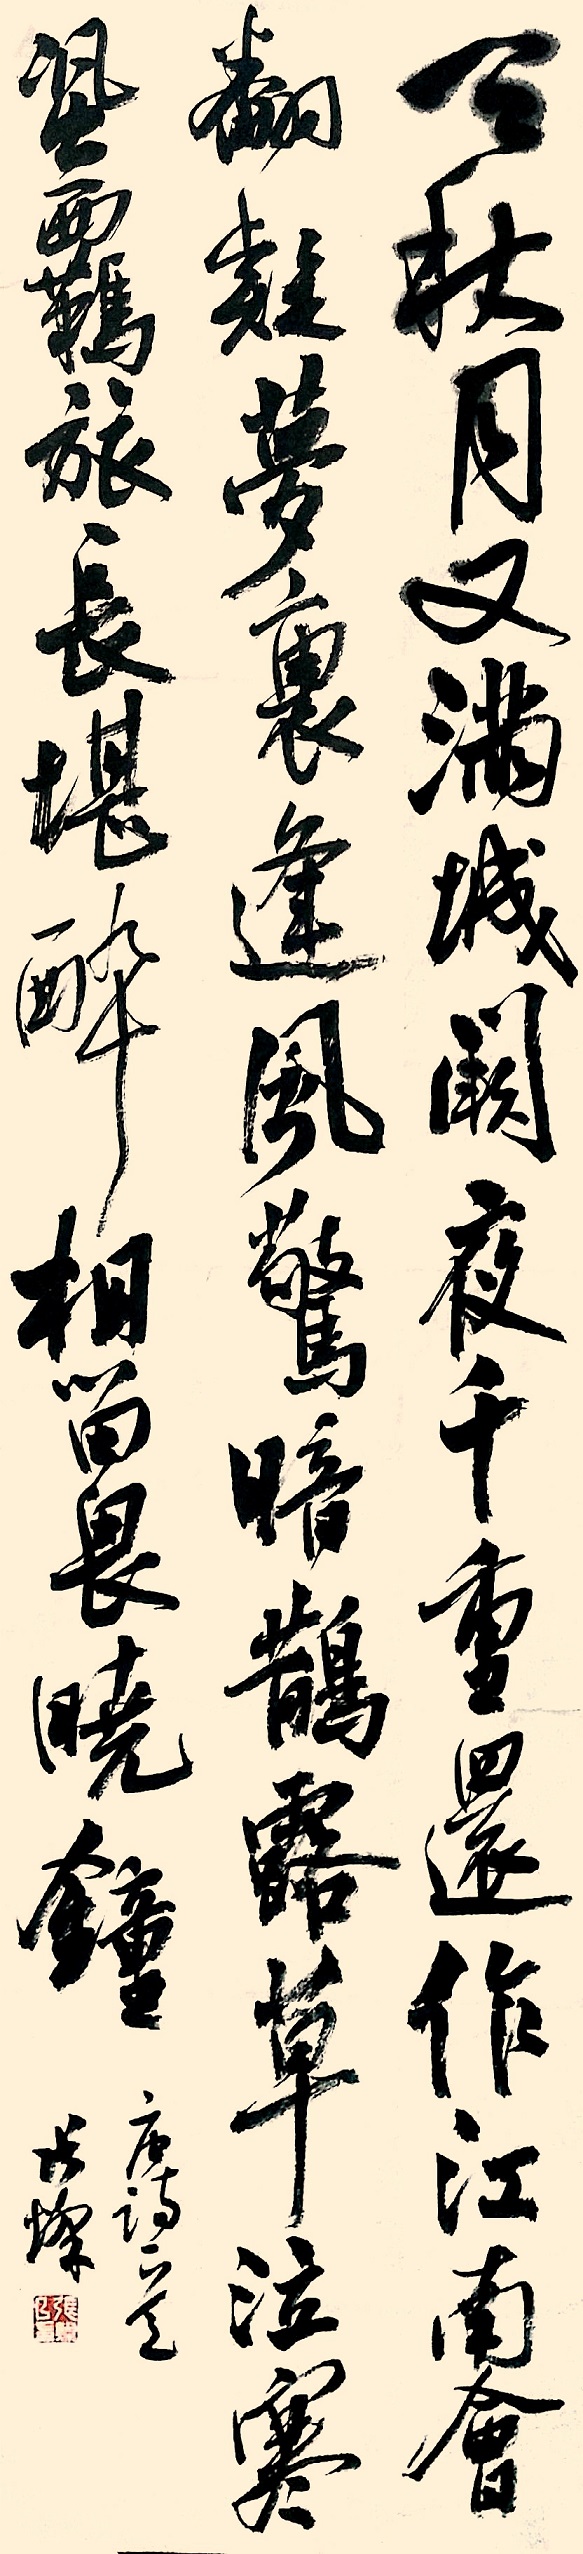 天秋月又滿城闕夜千重還作江南會
翻疑夢裏逢風驚暗鵲露草泣寒
蛩覊旅長堪醉相留畏曉鐘
唐詩一首